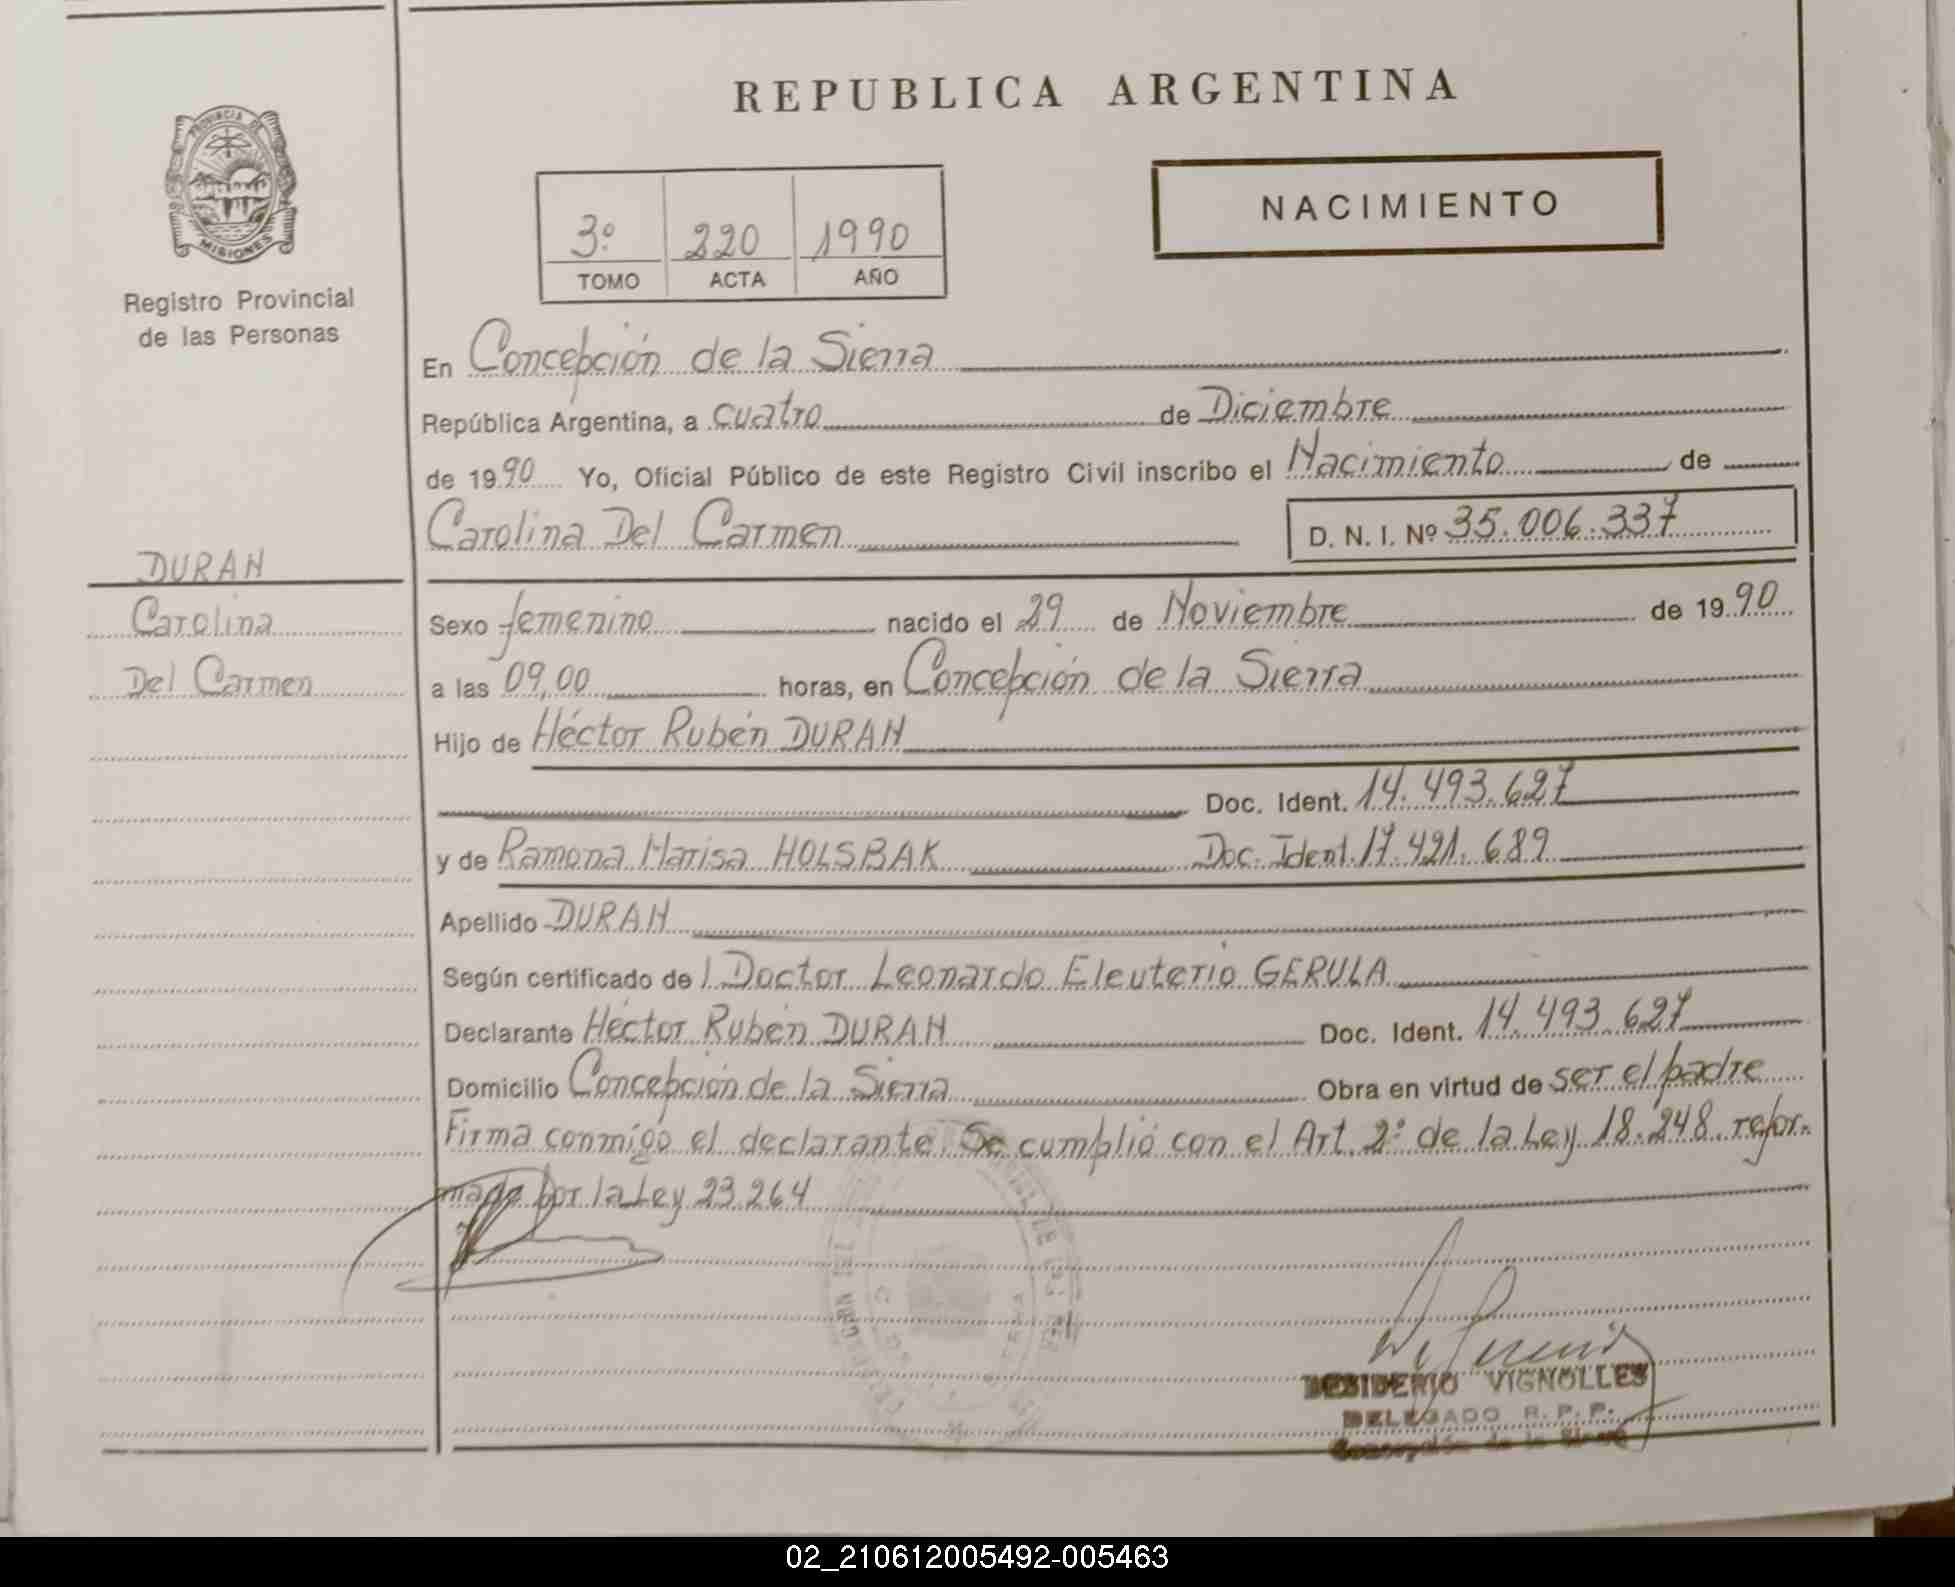 REPUBLICA ARGENTINA
PROVINCIA DE
MISIONES
Registro Provincial
de las Personas
3º 220 1990
TOMO ACTA AÑO
NACIMIENTO
En Concepción de la Sierra
República Argentina, a cuatro de Diciembre
de 1990 Yo, Oficial Público de este Registro Civil inscribo el Nacimiento de
Carolina Del Carmen D. N. I. Nº 35.006.337
DURAN
Carolina
Del Carmen
Sexo femenino nacido el 29 de Noviembre de 1990
a las 09,00 horas, en Concepción de la Sierra
Hijo de Héctor Rubén DURAN
Doc. Ident. 14.493.627
y de Ramona Marisa HOLSBAK Doc. Ident. 17.421.689
Apellido DURAN
Según certificado de l Doctor Leonardo Eleuterio GERULA
Declarante Héctor Rubén DURAN Doc. Ident. 14.493.627
Domicilio Concepción de la Sierra Obra en virtud de ser el padre
Firma conmigo el declarante. Se cumplió con el Art. 2º de la Ley 18.248 refor-
mado por la Ley 23.264
DESIDERIO VIGNOLLES
DELEGADO R. P. P.
Concepción de la Sierra
02_210612005492-005463